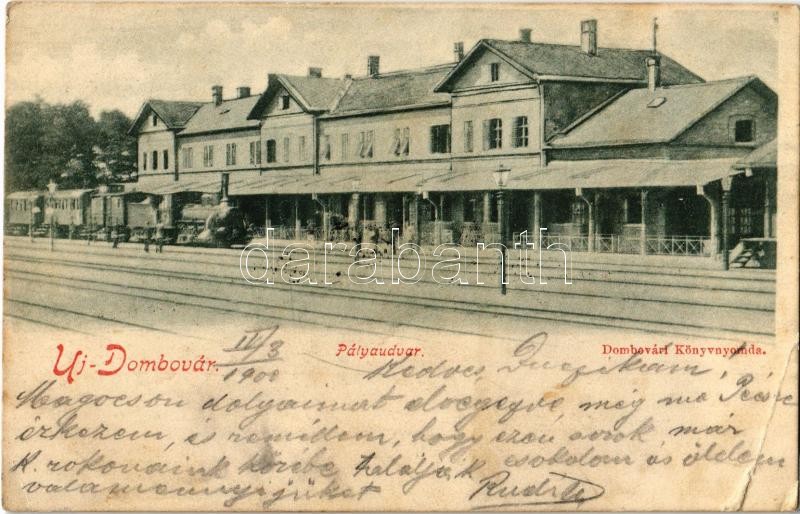 darabanth
Uj-Dombovár.
II/3
1900
Pályaudvar.
Dombovári Könyvnyomda.
Kedves
Magocson dolgaimat elvégezve, még ma Pécsre
érkezem, és remélem, hogy ezen sorok már
K. rokonaink körébe találják csókolom és ölelem
valamennyijüket Rudi